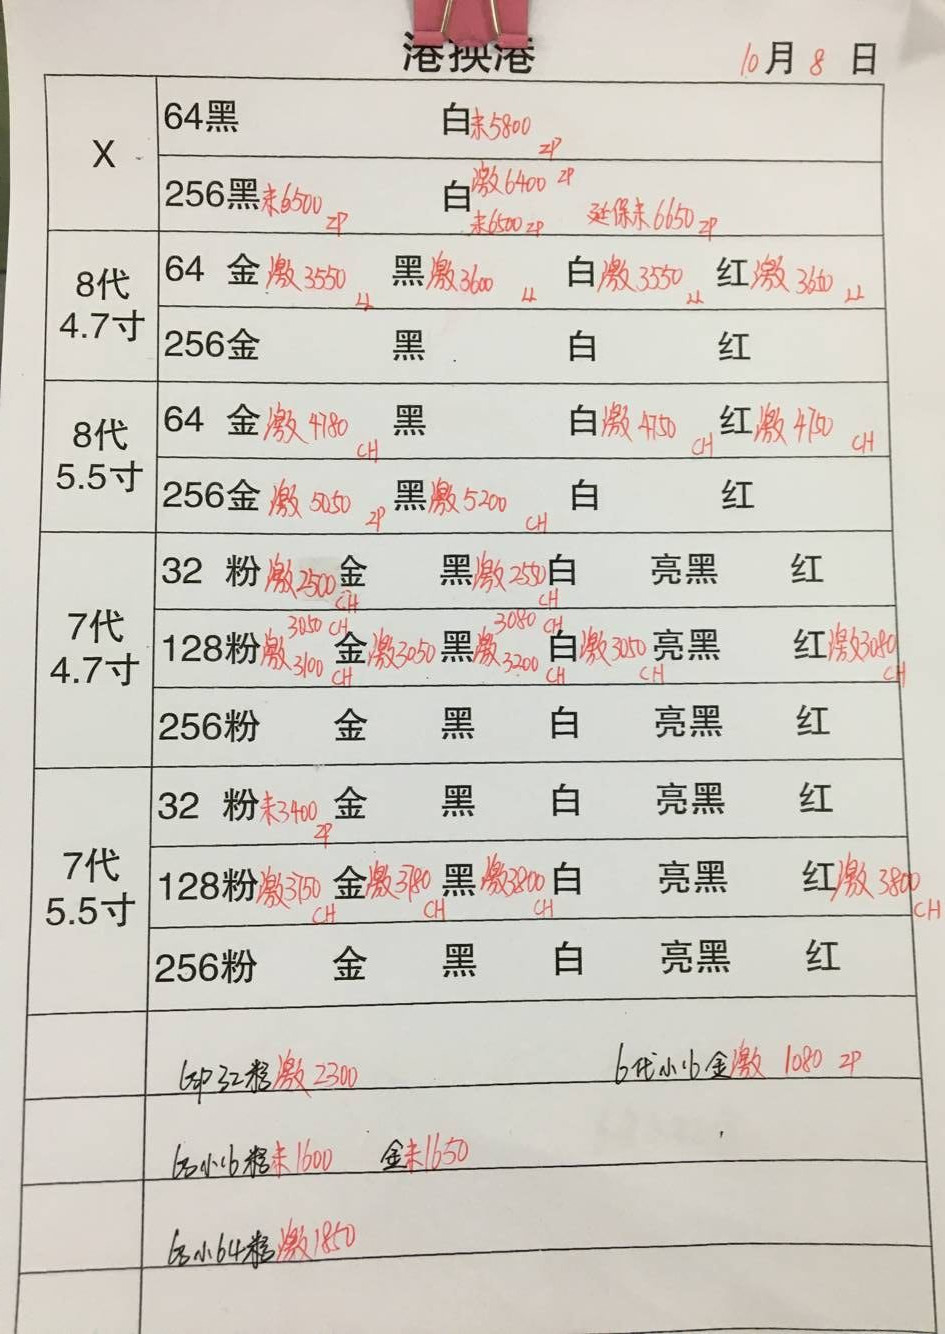 港换港 10月8日
X
64黑 白未5800 ZP
256黑未6500 ZP 白激6400 ZP 未6500 ZP 延保未6650 ZP
8代
4.7寸
64 金激3550 LL 黑激3600 LL 白激3550 LL 红激3600 LL
256金 黑 白 红
8代
5.5寸
64 金激4780 CH 黑 白激4750 CH 红激4750 CH
256金激5050 ZP 黑激5200 CH 白 红
7代
4.7寸
32 粉激2500 CH 金 黑激2550 CH 白 亮黑 红
128粉 3050 CH 激3100 CH 金激3050 黑 3080 CH 激3200 CH 白激3050 CH 亮黑 红激3080 CH
256粉 金 黑 白 亮黑 红
7代
5.5寸
32 粉未3400 ZP 金 黑 白 亮黑 红
128粉激3750 CH 金激3780 CH 黑激3800 CH 白 亮黑 红激3800 CH
256粉 金 黑 白 亮黑 红
32粉激2300 6代小16金激 1080 ZP
小16粉未1600 金未1650
小64粉激1850